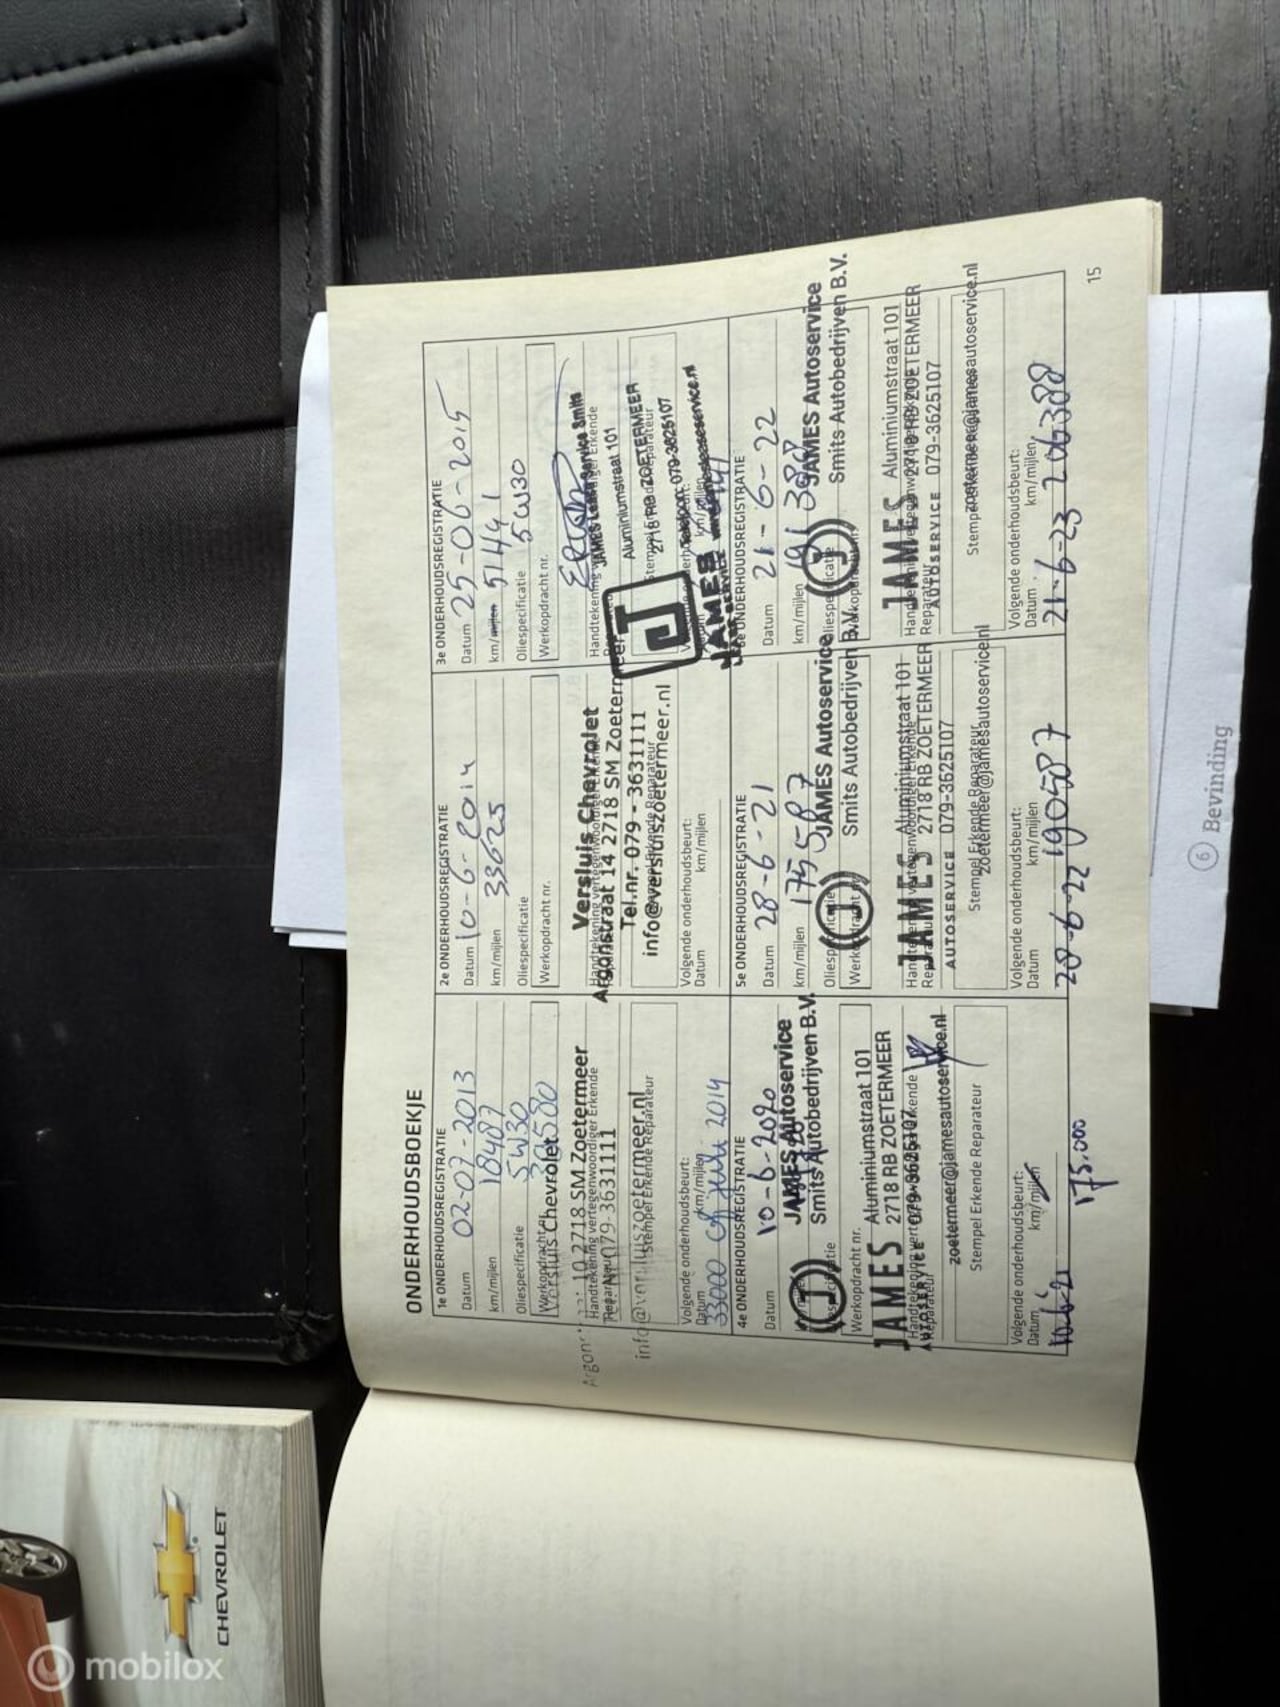 ONDERHOUDSBOEKJE
1e ONDERHOUDSREGISTRATIE
Datum 02-07-2013
km/mijlen 18487
Oliespecificatie 5W30
Werkopdracht nr.
Versluis Chevrolet
10 2718 SM Zoetermeer
Handtekening vertegenwoordiger Erkende
Reparateur
079-3631111
info@versluiszoetermeer.nl
Stempel Erkende Reparateur
Volgende onderhoudsbeurt:
Datum km/mijlen
33000 of juli 2014
2e ONDERHOUDSREGISTRATIE
Datum 10-6-2014
km/mijlen 33625
Oliespecificatie
Werkopdracht nr.
Versluis Chevrolet
Handtekening vertegenwoordiger Erkende
Argonstraat 14 2718 SM Zoetermeer
Tel.nr. 079 - 3631111
Stempel Erkende Reparateur
info@versluiszoetermeer.nl
Volgende onderhoudsbeurt:
Datum km/mijlen
3e ONDERHOUDSREGISTRATIE
Datum 25-06-2015
km/mijlen 51441
Oliespecificatie 5W30
Werkopdracht nr.
JAMES Lease Service Smits
Handtekening vertegenwoordiger Erkende
Aluminiumstraat 101
2718 RB ZOETERMEER
Stempel Erkende Reparateur
Telefoon: 079-3625107
J
JAMES
LEASE SERVICE
km/mijlen
4e ONDERHOUDSREGISTRATIE
Datum 10-6-2020
JAMES Autoservice
Smits Autobedrijven B.V.
(J)
Oliespecificatie
Werkopdracht nr.
Aluminiumstraat 101
JAMES 2718 RB ZOETERMEER
Handtekening vertegenwoordiger Erkende
Reparateur
AUTOSERVICE 079-3625107
zoetermeer@jamesautoservice.nl
Stempel Erkende Reparateur
Volgende onderhoudsbeurt:
Datum km/mijlen
175.000
5e ONDERHOUDSREGISTRATIE
Datum 28-6-21
km/mijlen 175587
JAMES Autoservice
Oliespecificatie
(J) Smits Autobedrijven B.V.
Werkopdracht nr.
Aluminiumstraat 101
Handtekening vertegenwoordiger Erkende
JAMES 2718 RB ZOETERMEER
Reparateur
AUTOSERVICE 079-3625107
Stempel Erkende Reparateur
zoetermeer@jamesautoservice.nl
Volgende onderhoudsbeurt:
Datum km/mijlen
28-6-22 190587
6e ONDERHOUDSREGISTRATIE
Datum 21-6-22
km/mijlen 191388
JAMES Autoservice
Oliespecificatie
(J) Smits Autobedrijven B.V.
Werkopdracht nr.
Aluminiumstraat 101
Handtekening vertegenwoordiger Erkende
JAMES 2718 RB ZOETERMEER
Reparateur
AUTOSERVICE 079-3625107
zoetermeer@jamesautoservice.nl
Stempel Erkende Reparateur
Volgende onderhoudsbeurt:
Datum km/mijlen
21-6-23 206388
15
6 Bevinding
CHEVROLET
mobilox